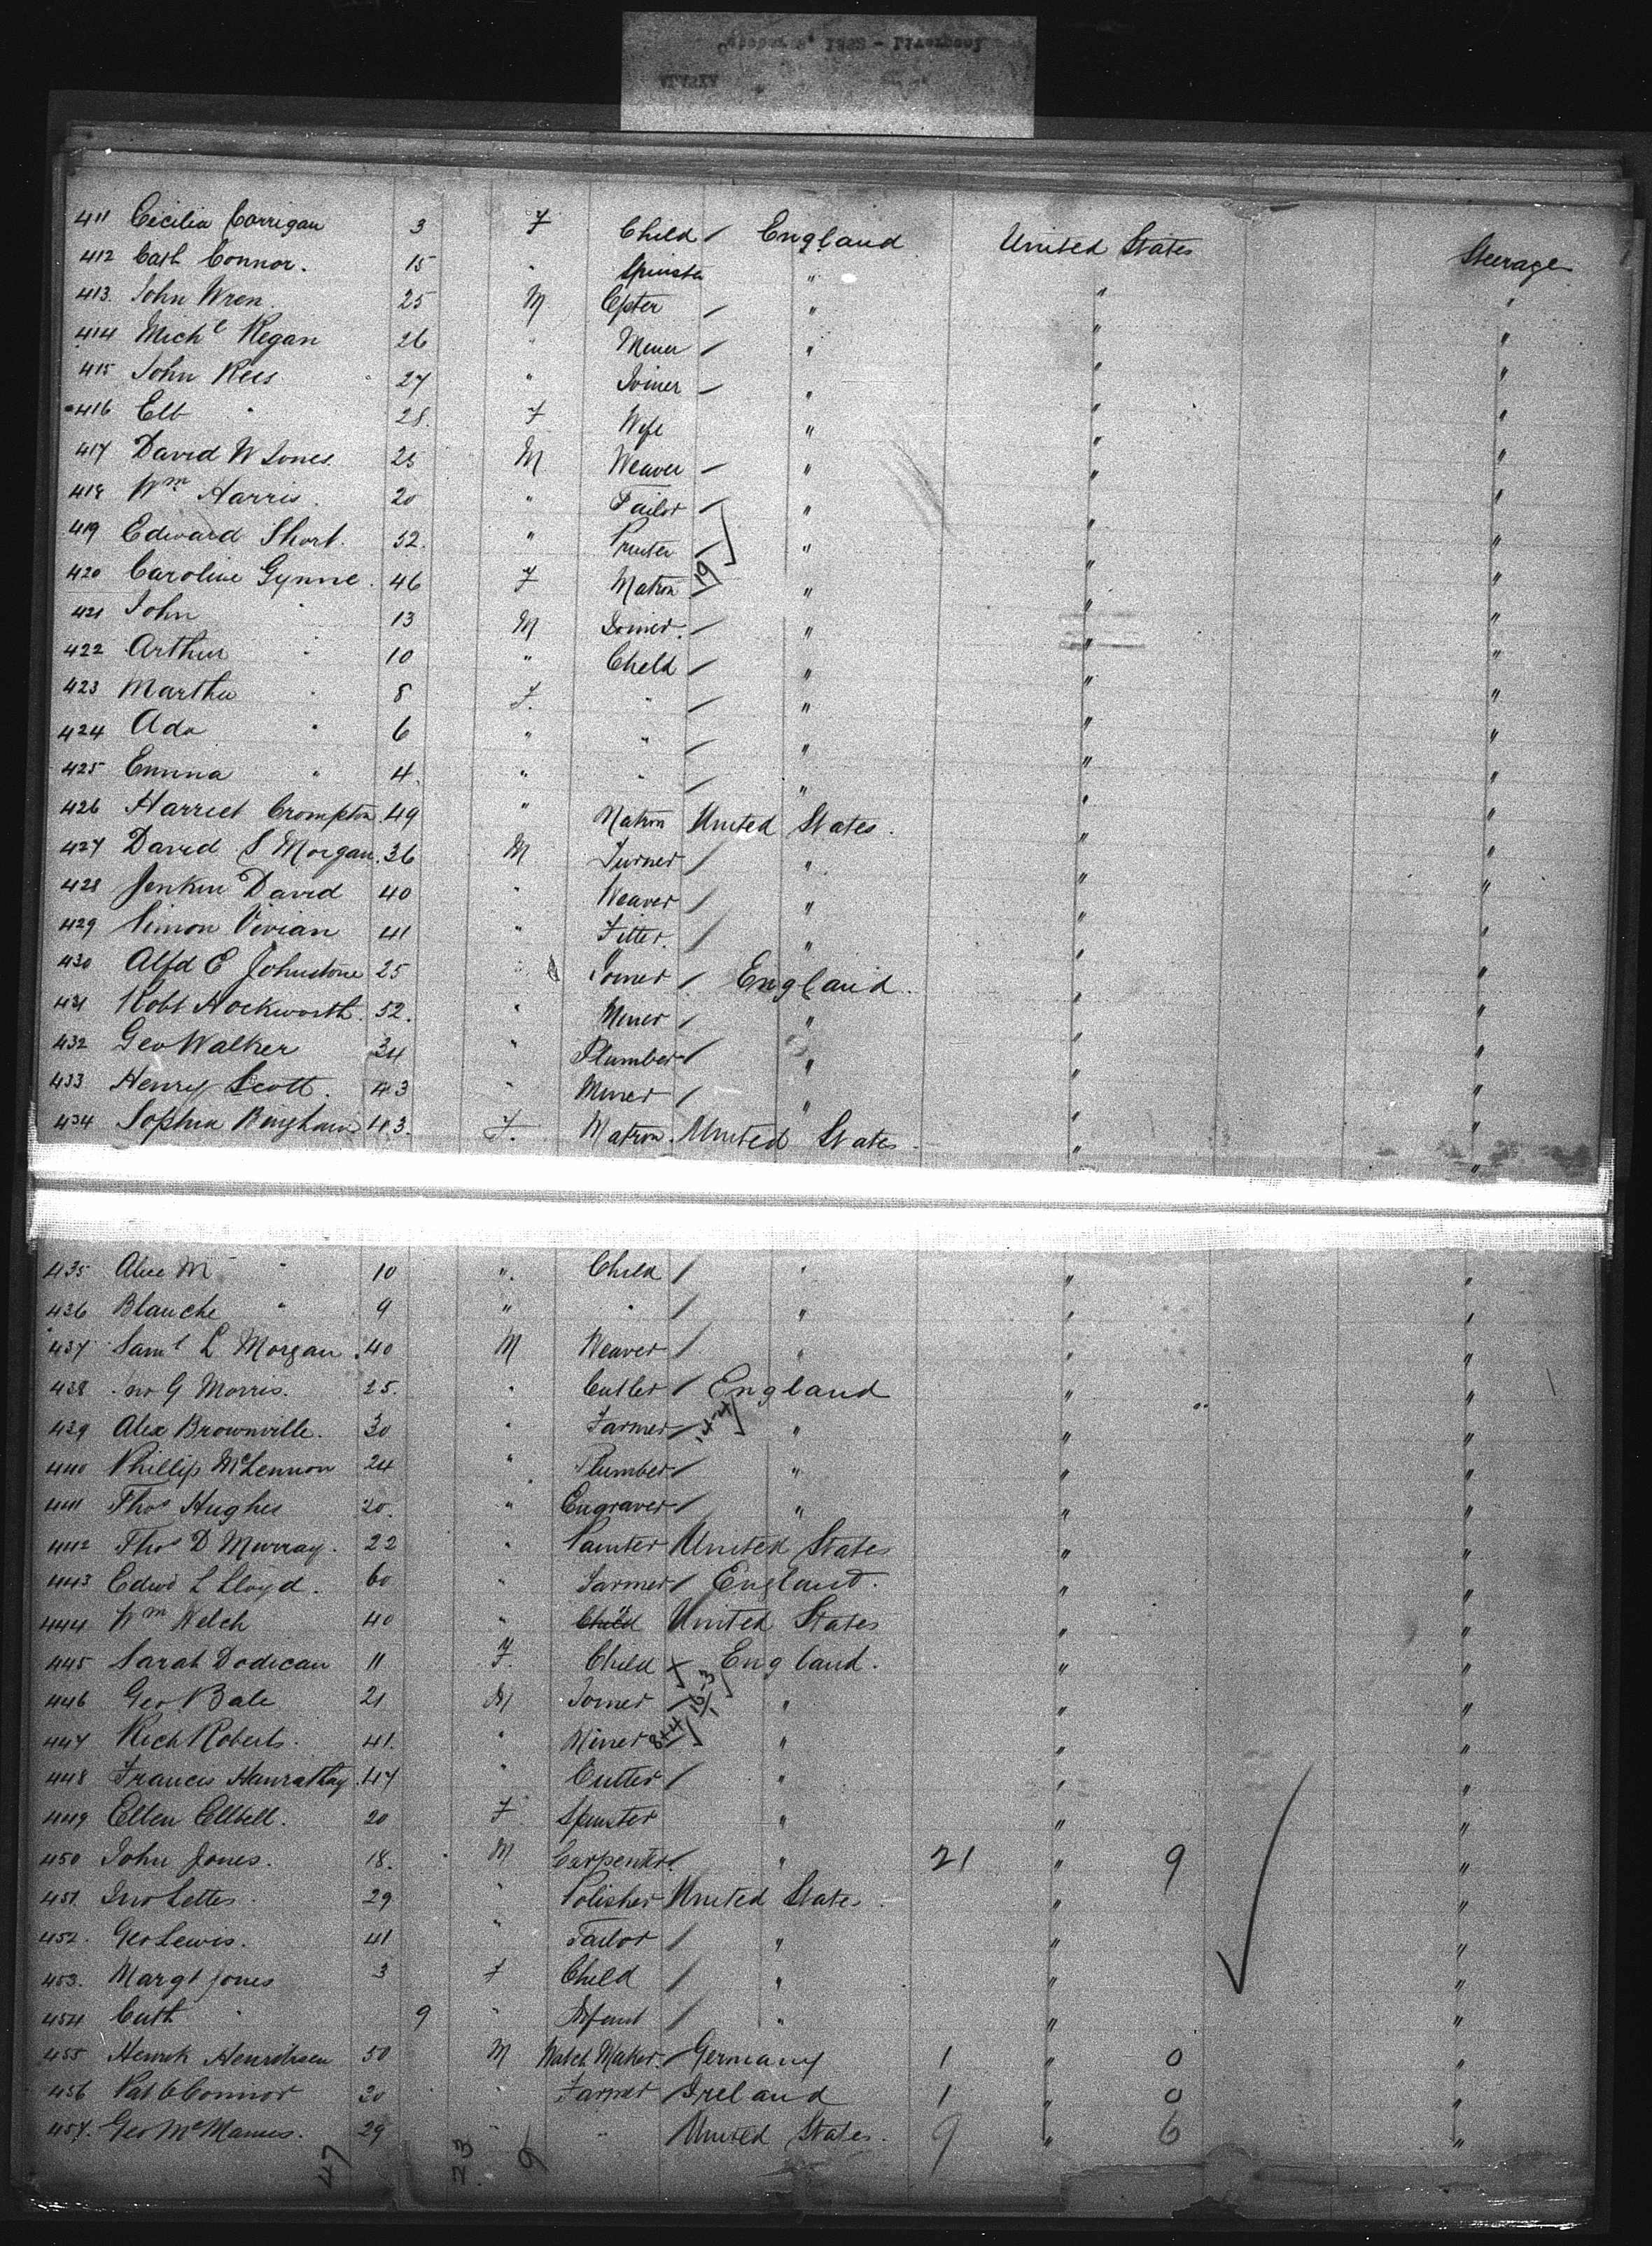 October 8, 1888 - Liverpool
411 Cecilia Corrigan 3 F Child / England United States Steerage
412 Cath Connor. 15 " Spinster " " "
413. John Wren. 25 M / " " "
414 Michl Regan 26 " Miner / " " "
415 John Rees 27 " Joiner / " " "
416 Elb " 28. F Wife " " "
417 David W Jones 25 M Weaver / " " "
418 Wm Harris 20 " Tailor / " " "
419 Edward Short. 52. " Printer / " " "
420 Caroline Gynne. 46 F Matron 19 " " "
421 John " 13 M Joiner. / " " "
422 Arthur " 10 " Child / " " "
423 Martha " 8 F. " / " " "
424 Ada " 6 " " / " " "
425 Emma " 4. " " / " " "
426 Harriet Crompton. 49 " Matron United States. " "
427 David S Morgan. 36 M Turner / " " "
428 Jenkin David 40 " Weaver / " " "
429 Simon Vivian 41 " Fitter. / " " "
430 Alfd E Johnstone 25 " Joiner / England. " "
431 Robt Hockworth. 52. " Miner / " " "
432 Geo Walker 34 " Plumber / " " "
433 Henry Scott. 43 " Miner / " " "
434 Sophia Bingham 43. F. Matron. United States. " "
435 Alice M " 10 " Child / " " "
436 Blanche " 9 " " / " " "
437 Saml L Morgan. 40 M Weaver / " " "
438 Jno G Morris. 25. " Cutler / England " "
439 Alex Brownville. 30 " Farmer / " " "
440 Phillip McLennon 24 " Plumber / " " "
441 Thos Hughes 20. " Engraver / " " "
442 Thos D Murray. 22 " Painter United States " "
443 Edwd L Lloyd. 60 " Farmer / England. " "
444 Wm Welch 40 " Child United States " "
445 Sarah Dodican 11 F. Child England. " "
446 Geo Bale 21 M Joiner / " " "
447 Rich Roberts. 41. " Miner " " "
448 Francis Hanrathay. 47 " Cutter / " " "
449 Ellen Ellbell. 20 F Spinster " " "
450 John Jones. 18. M Carpenter. / " 21 " 9 "
451. Jno Lettes. 29 " Polisher United States. " "
452. Geo Lewis. 41 " Tailor / " " "
453. Margt Jones 3 F Child / " " "
454 Cath " 9 " Infant / " " "
455 Henrik Henriksen 50 M Watch Maker. / Germany 1 " 0 "
456 Pat OConnor 20 " Farmer / Ireland 1 " 0 "
457. Geo McManus. 29 " " United States. 9 " 6 "
47 23 9